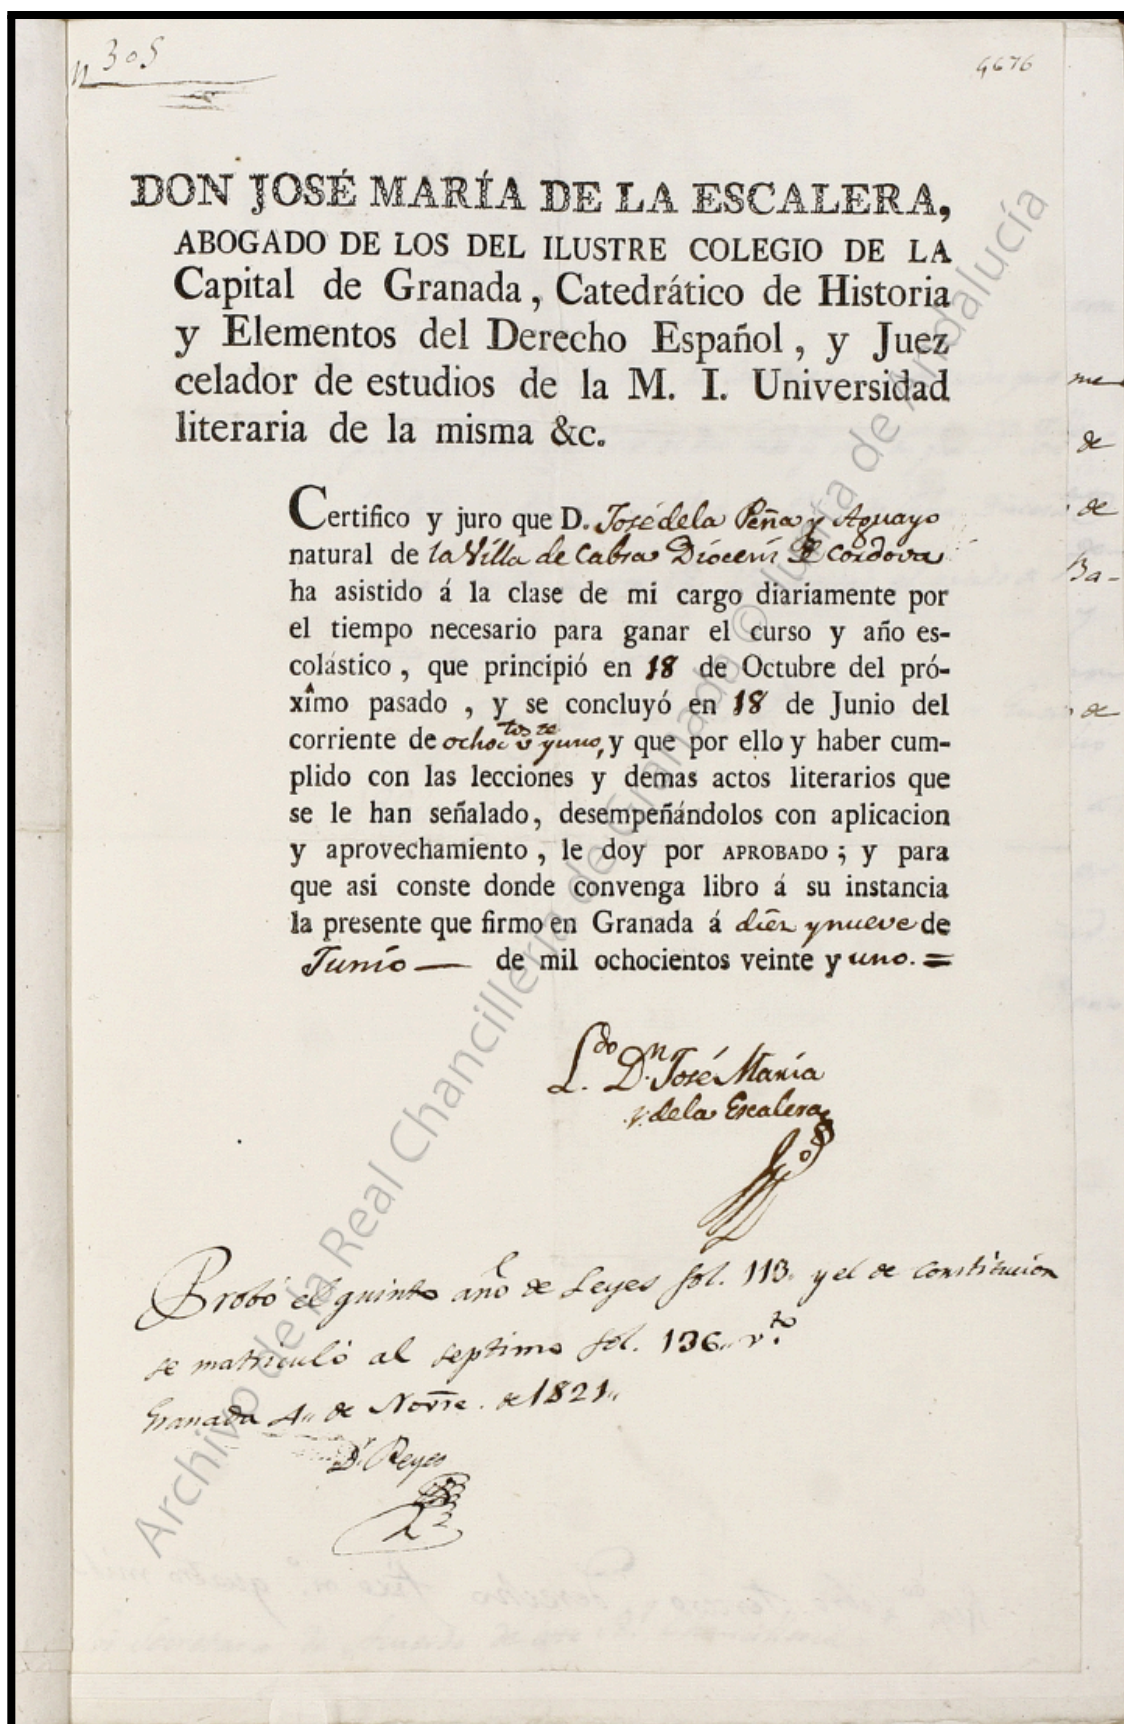 n 305
4676
DON JOSÉ MARÍA DE LA ESCALERA,
ABOGADO DE LOS DEL ILUSTRE COLEGIO DE LA
Capital de Granada, Catedrático de Historia
y Elementos del Derecho Español, y Juez
celador de estudios de la M. I. Universidad
literaria de la misma &c.
Certifico y juro que D. José de la Peña y Aguayo
natural de la Villa de Cabra Diocesis de Cordova
ha asistido á la clase de mi cargo diariamente por
el tiempo necesario para ganar el curso y año es-
colástico, que principió en 18 de Octubre del pró-
xîmo pasado, y se concluyó en 18 de Junio del
corriente de ochoctos vte y uno, y que por ello y haber cum-
plido con las lecciones y demas actos literarios que
se le han señalado, desempeñándolos con aplicacion
y aprovechamiento, le doy por APROBADO; y para
que asi conste donde convenga libro á su instancia
la presente que firmo en Granada á diez y nueve de
Junio — de mil ochocientos veinte y uno. =
Ldo. Dn. José María
de la Escalera
Probó el quinto año de Leyes fol. 113. y el de Constitucion
se matriculó al septimo fol. 136. vto.
Granada 4 de Novre. de 1821
Dr Reyes
me
de
de
Ba-
de
Archivo de la Real Chancillería de Granada © Junta de Andalucía